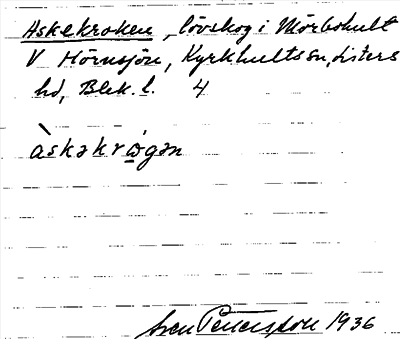 Askekroken, lövskog i Mörbohult
V Hörnsjön, Kyrkhults sn, Listers
hd, Blek. l. 4
àskəkrώ̲gən
Sven Pettersson 1936